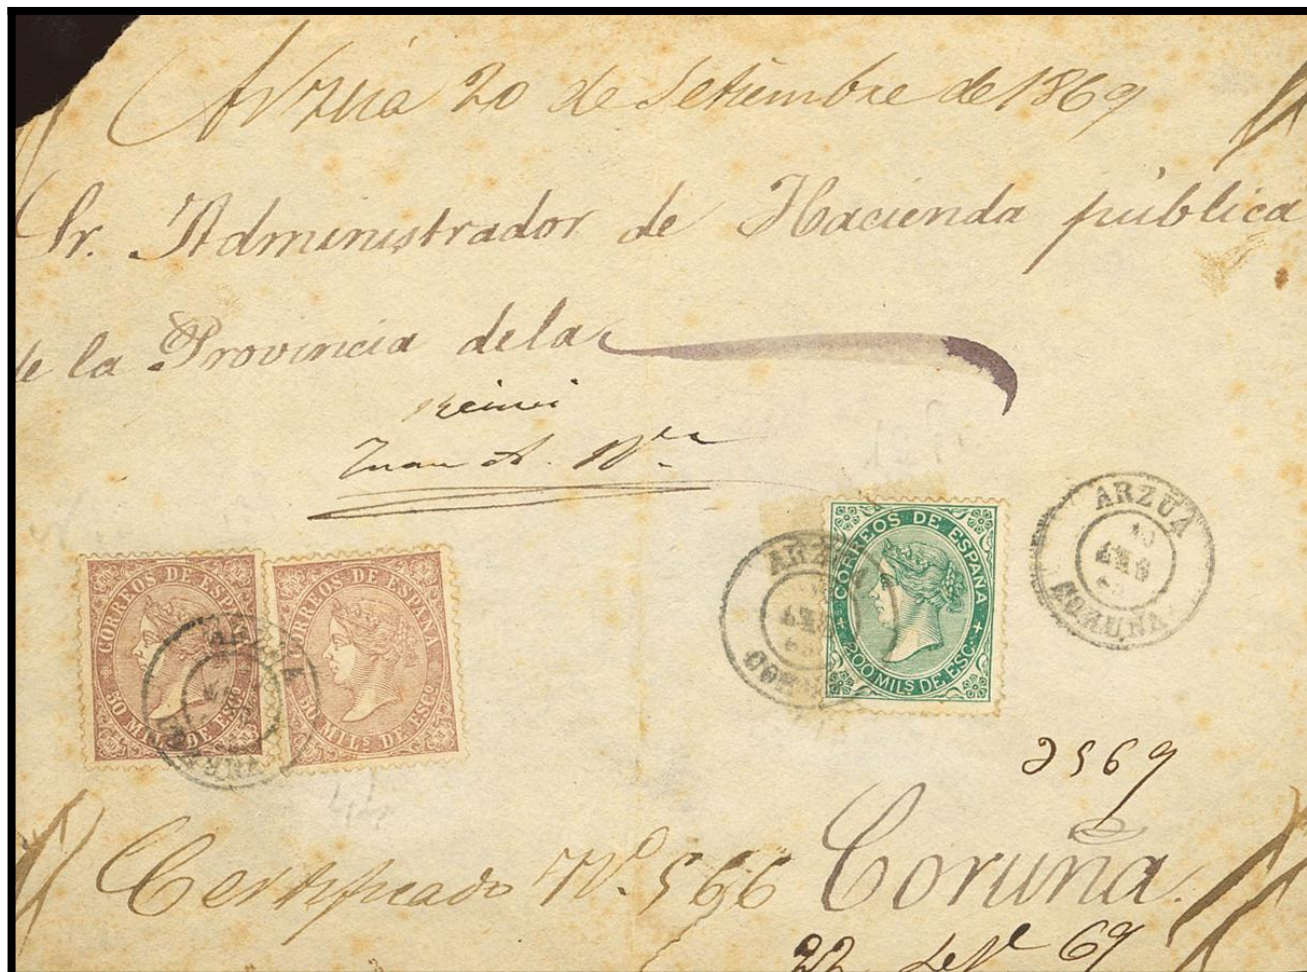 Arzúa 20 de Setiembre de 1869
Sr. Administrador de Hacienda pública
de la Provincia de la
Juan A.
CORREOS DE ESPAÑA
50 MILS DE ESCO
CORREOS DE ESPAÑA
50 MILS DE ESCO
CORREOS DE ESPAÑA
200 MILS DE ESC.
ARZUA
CORUÑA
2569
Certificado Nº. 566 Coruña.
22 69